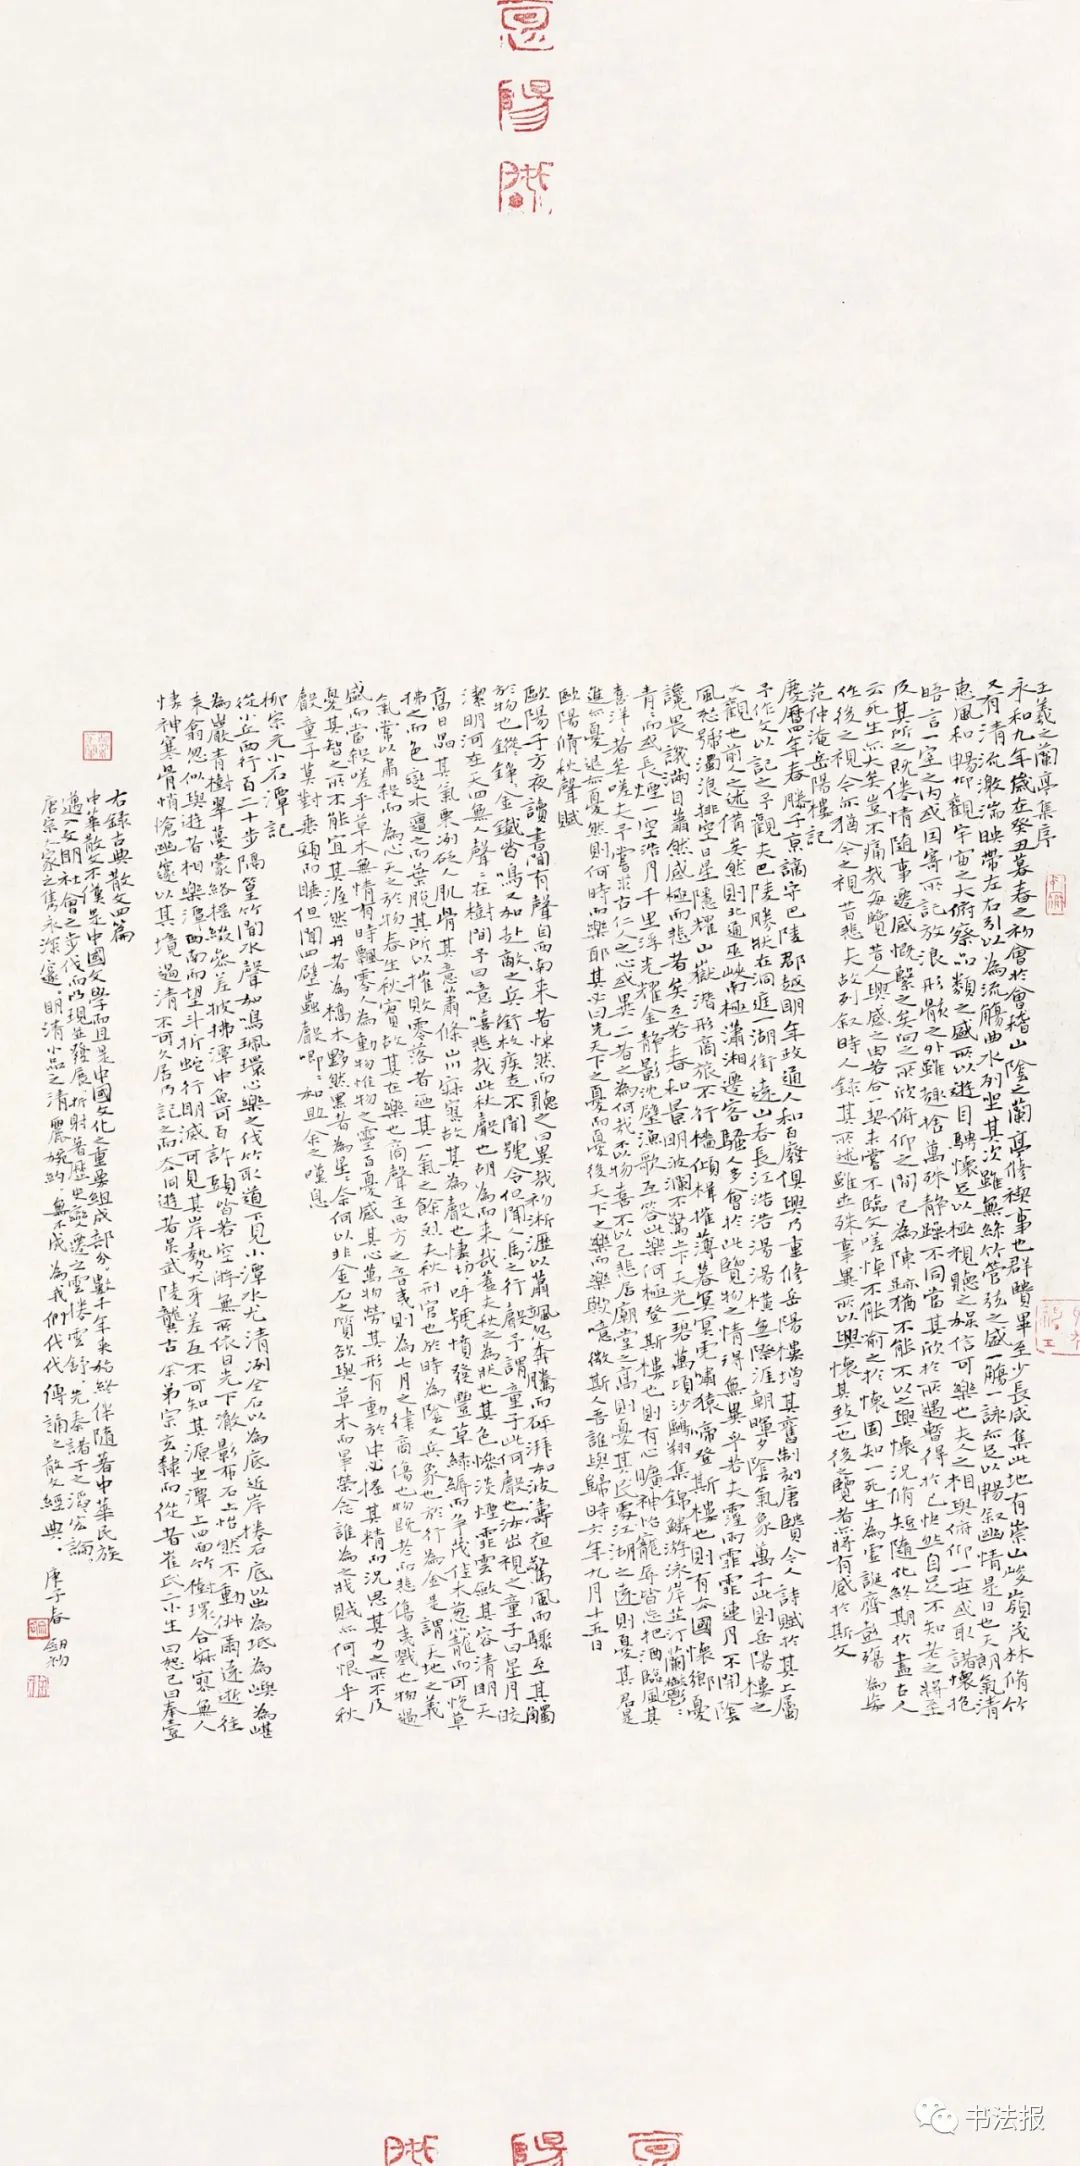 王羲之蘭亭集序
永和九年歲在癸丑暮春之初會於會稽山陰之蘭亭修禊事也群賢畢至少長咸集此地有崇山峻嶺茂林脩竹
又有清流激湍映帶左右引以為流觴曲水列坐其次雖無絲竹管弦之盛一觴一詠亦足以暢叙幽情是日也天朗氣清
惠風和暢仰觀宇宙之大俯察品類之盛所以遊目騁懷足以極視聽之娛信可樂也夫人之相與俯仰一世或取諸懷抱
晤言一室之內或因寄所託放浪形骸之外雖趣捨萬殊靜躁不同當其欣於所遇暫得於己怏然自足不知老之將至
及其所之既倦情隨事遷感慨繫之矣向之所欣俯仰之間已為陳跡猶不能不以之興懷況脩短隨化終期於盡古人
云死生亦大矣豈不痛哉每覽昔人興感之由若合一契未嘗不臨文嗟悼不能喻之於懷固知一死生為虛誕齊彭殤為妄
作後之視今亦猶今之視昔悲夫故列叙時人錄其所述雖世殊事異所以興懷其致一也後之覽者亦將有感於斯文
范仲淹岳陽樓記
慶曆四年春滕子京謫守巴陵郡越明年政通人和百廢俱興乃重修岳陽樓增其舊制刻唐賢今人詩賦於其上屬
予作文以記之予觀夫巴陵勝狀在洞庭一湖銜遠山吞長江浩浩湯湯橫無際涯朝暉夕陰氣象萬千此則岳陽樓之
大觀也前人之述備矣然則北通巫峽南極瀟湘遷客騷人多會於此覽物之情得無異乎若夫霪雨霏霏連月不開陰
風怒號濁浪排空日星隱耀山嶽潛形商旅不行檣傾楫摧薄暮冥冥虎嘯猿啼登斯樓也則有去國懷鄉憂
讒畏譏滿目蕭然感極而悲者矣至若春和景明波瀾不驚上下天光一碧萬頃沙鷗翔集錦鱗游泳岸芷汀蘭鬱鬱
青青而或長煙一空浩月千里浮光耀金靜影沈璧漁歌互答此樂何極登斯樓也則有心曠神怡寵辱皆忘把酒臨風其
喜洋洋者矣嗟夫予嘗求古仁人之心或異二者之為何哉不以物喜不以己悲居廟堂之高則憂其民處江湖之遠則憂其君是
進亦憂退亦憂然則何時而樂耶其必曰先天下之憂而憂後天下之樂而樂歟噫微斯人吾誰與歸時六年九月十五日
歐陽脩秋聲賦
歐陽子方夜讀書聞有聲自西南來者悚然而聽之曰異哉初淅瀝以蕭颯忽奔騰而砰湃如波濤夜驚風雨驟至其觸
於物也鏦鏦錚錚金鐵皆鳴又如赴敵之兵銜枚疾走不聞號令但聞人馬之行聲予謂童子此何聲也汝出視之童子曰星月皎
潔明河在天四無人聲聲在樹間予曰噫嘻悲哉此秋聲也胡為而來哉蓋夫秋之為狀也其色慘淡煙霏雲斂其容清明天
高日晶其氣栗冽砭人肌骨其意蕭條山川寂寥故其為聲也悽悽切切呼號憤發豐草綠縟而爭茂佳木葱籠而可悅草
拂之而色變木遭之而葉脫其所以摧敗零落者乃其一氣之餘烈夫秋刑官也於時為陰又兵象也於行為金是謂天地之義
氣常以肅殺而為心天之於物春生秋實故其在樂也商聲主西方之音夷則為七月之律商傷也物既老而悲傷夷戮也物過
盛而當殺嗟乎草木無情有時飄零人為動物惟物之靈百憂感其心萬物勞其形有動於中必搖其精而況思其力之所不及
憂其智之所不能宜其渥然丹者為槁木黟然黑者為星星奈何以非金石之質欲與草木而爭榮念誰為之戕賊亦何恨乎秋
聲童子莫對垂頭而睡但聞四壁蟲聲唧唧如助余之嘆息
柳宗元小石潭記
從小丘西行百二十步隔篁竹聞水聲如鳴珮環心樂之伐竹取道下見小潭水尤清冽全石以為底近岸捲石底以出為坻為嶼為嵁
為巖青樹翠蔓蒙絡搖綴參差披拂潭中魚可百許頭皆若空游無所依日光下澈影布石上怡然不動俶爾遠逝往
來翕忽似與遊者相樂潭西南而望斗折蛇行明滅可見其岸勢犬牙差互不可知其源坐潭上四面竹樹環合寂寥無人
悽神寒骨悄愴幽邃以其境過清不可久居乃記之而去同遊者吳武陵龔古余弟宗玄隸而從者崔氏二小生曰恕己曰奉壹
右錄古典散文四篇
中華散文不僅是中國文學而且是中國文化之重要組成部分數千年來始終伴隨著中華民族
邁入文明社會之步伐而乃現並發展折射著歷史變遷之雲捲雲舒先秦諸子之滔宏論
唐宗八家之雋永深邃明清小品之清麗婉約無不成為我們代代傳誦之散文經典
庚子春
书法报